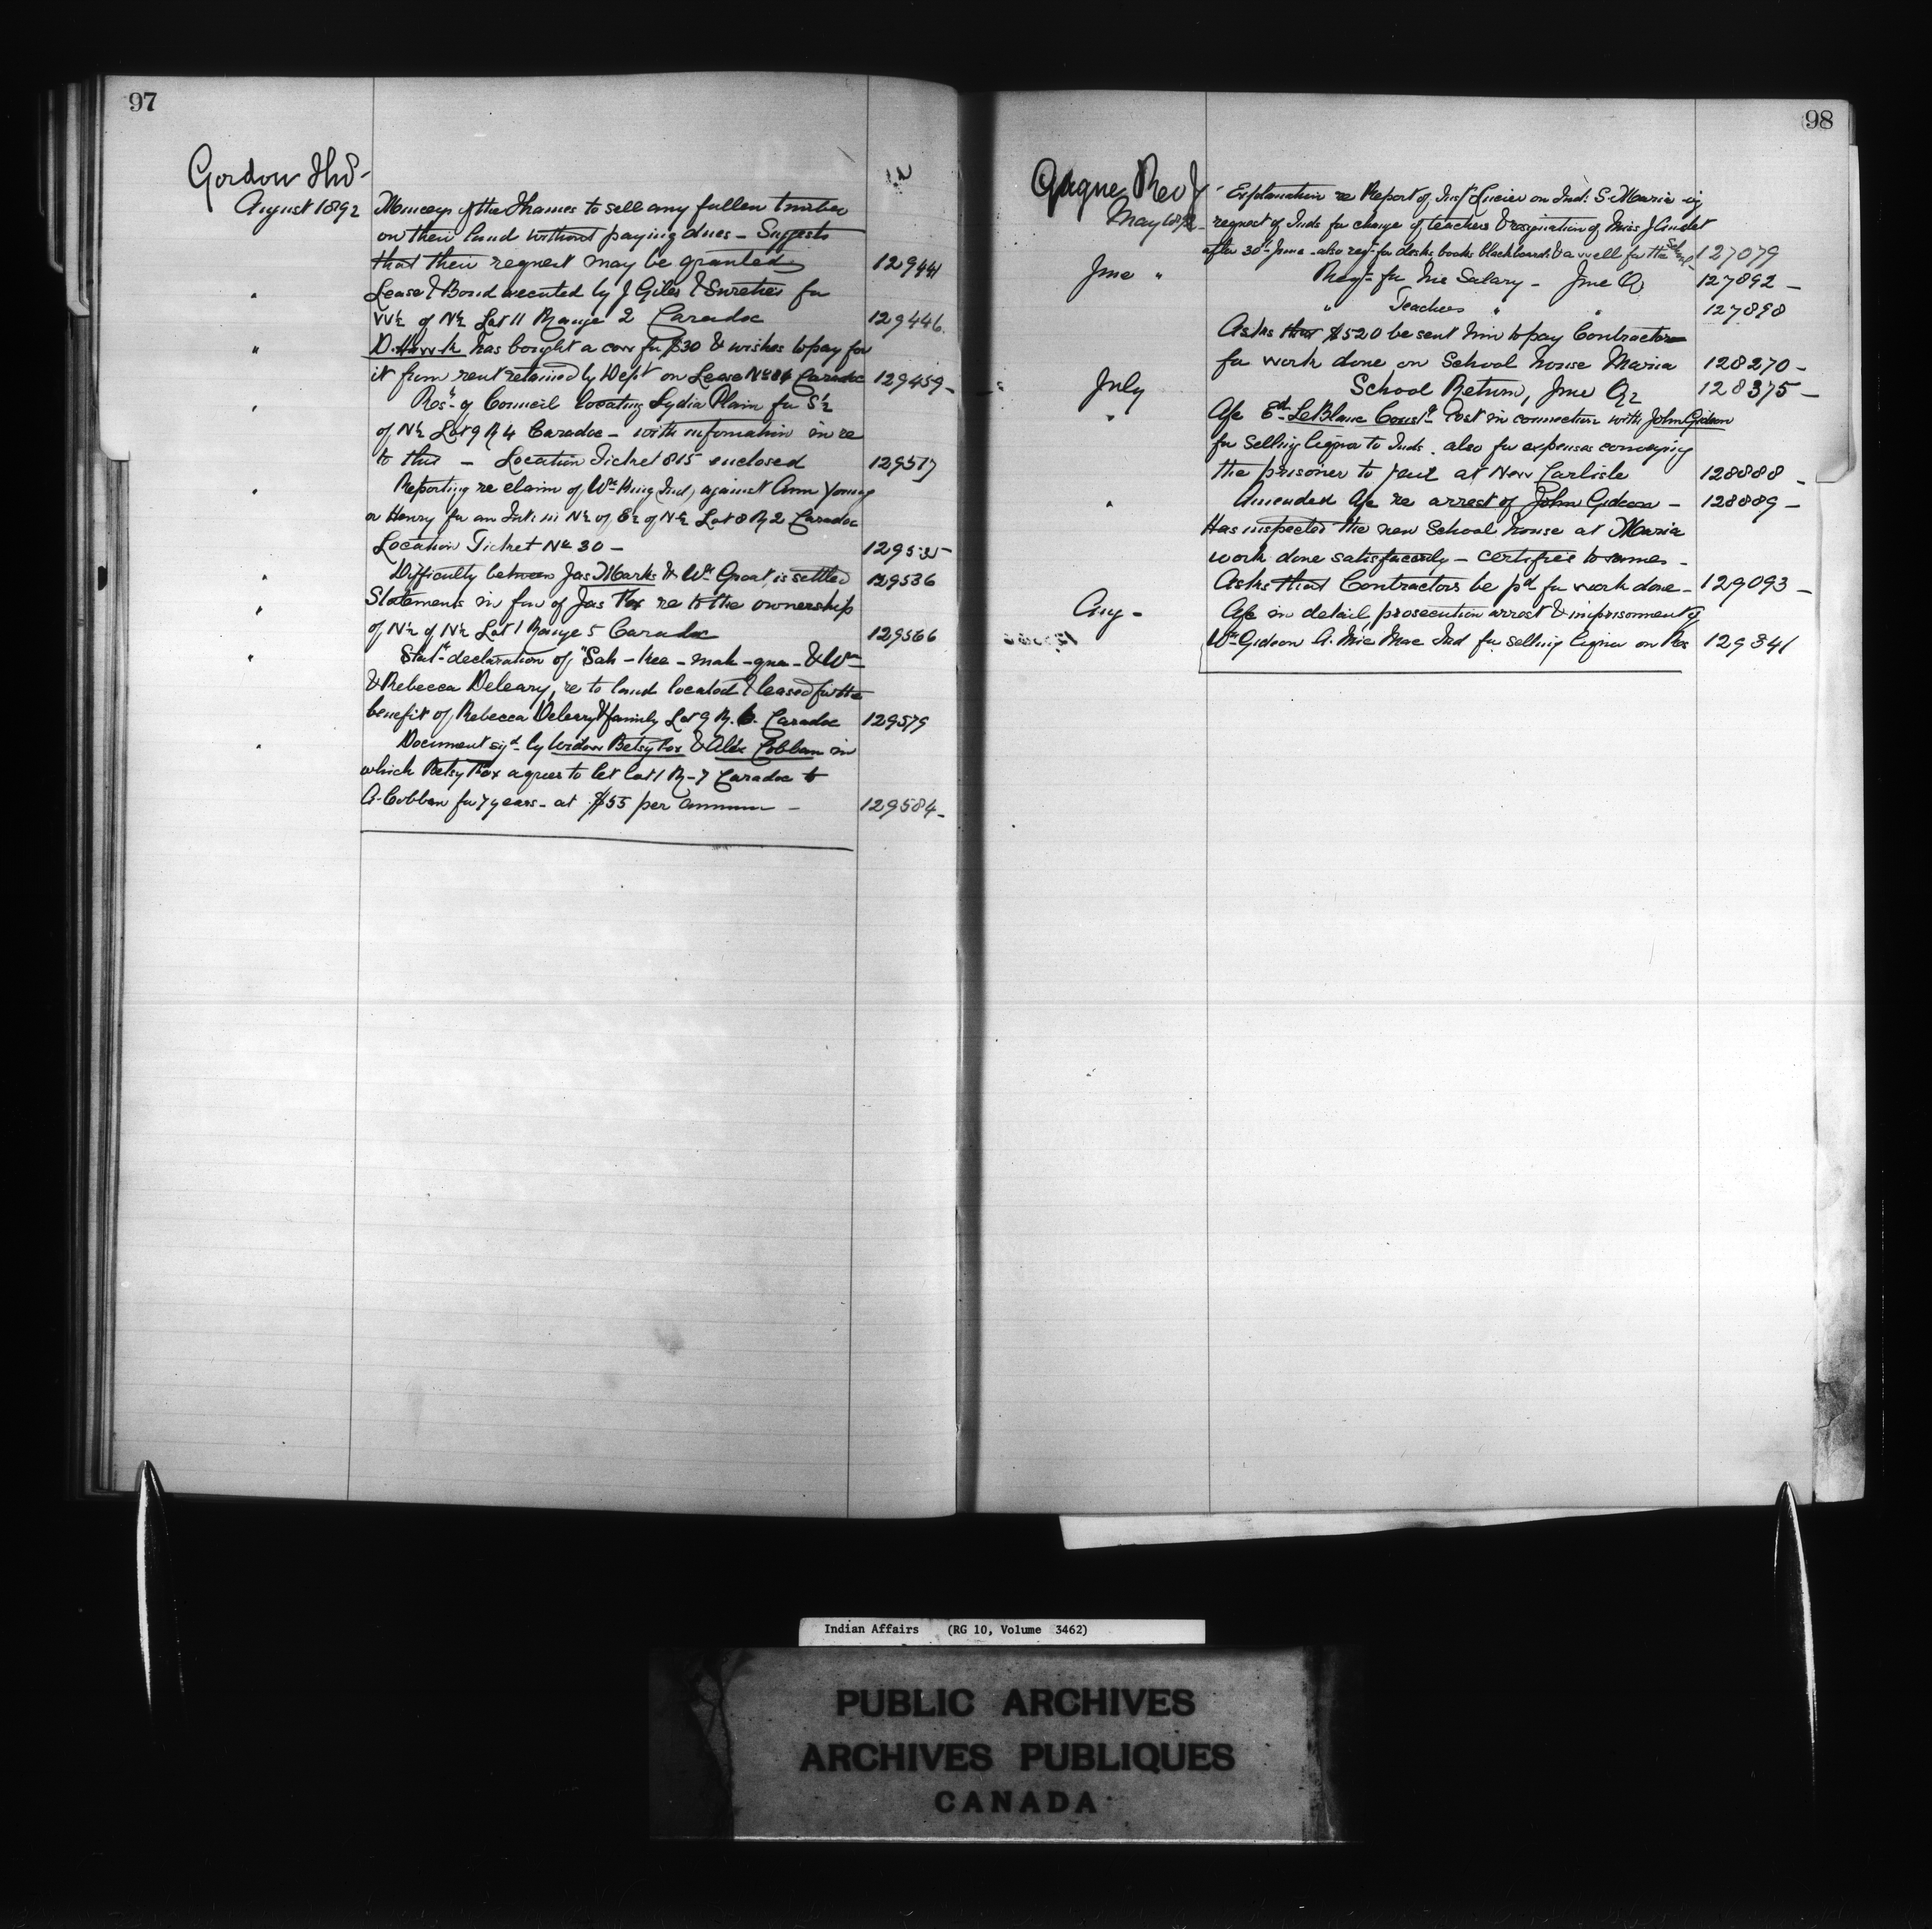 97
Gordon Thos
August 1892 Munceys of the Thames to sell any fallen timber
on their land without paying dues - Suggests
that their request may be granted 129441
" Lease & Bond executed by J Giles & Sureties for
W½ of N½ Lot 11 Range 2 Caradoc 129446
" D. Hawk has bought a cow for $30 & wishes to pay for
it from rent retained by Dept on Lease No 84 Caradoc 129459 -
" Resn of Council locating Lydia Plain for S½
of N½ Lot 9 R 4 Caradoc - with information in re
to this - Location Ticket 815 enclosed 129517
" Reporting re claim of Wm King Ind, against Ann Young
or Henry for an Int. in N½ of E½ of N½ Lot 8 R 2 Caradoc
Location Ticket No 30 - 129535
" Difficulty between Jas Marks & Wm Groat is settled 129536
" Statements in fav of Jas Fox re to the ownership
of N½ of N½ Lot 1 Range 5 Caradoc 129566
" Staty declaration of "Sah-kee-mah-qua - & Wm
& Rebecca Deleary, re to land located & leased for the
benefit of Rebecca Deleary & family Lot 9 R. 6. Caradoc 129579
" Document sigd by Widow Betsy Fox & Alex Cobban in
which Betsy Fox agrees to let Lot 1 R-7 Caradoc to
A. Cobban for 7 years - at $55 per annum - 129584 -
98
Gagne Rev J
May 1892 - Explanation re Report of Insp Lucier on Ind. S. Maria
request of Inds for change of teachers & resignation of Miss J Audet
after 30th June - also reqn for desks books blackboards & a well for the School - 127079
June " Reqn for his Salary - June Qr 127892 -
" Teachers " " 127898
Asks that $520 be sent him to pay Contractors
for work done on School house Maria 128270 -
July School Return, June Qr 128375 -
" A/c Ed. LeBlanc Const Cost in connection with John Gideon
for selling liquor to Inds. also for expenses conveying
the prisoner to jail at New Carlisle 128888 -
" Amended A/c re arrest of John Gideon - 128889 -
Has inspected the new School house at Maria
work done satisfactorily - certifies to same -
Asks that Contractors be pd for work done - 129093 -
Aug - A/c in detail prosecution arrest & imprisonment of
Wm Gideon A. Mic Mac Ind for selling liquor on Res 129341
Indian Affairs (RG 10, Volume 3462)
PUBLIC ARCHIVES
ARCHIVES PUBLIQUES
CANADA